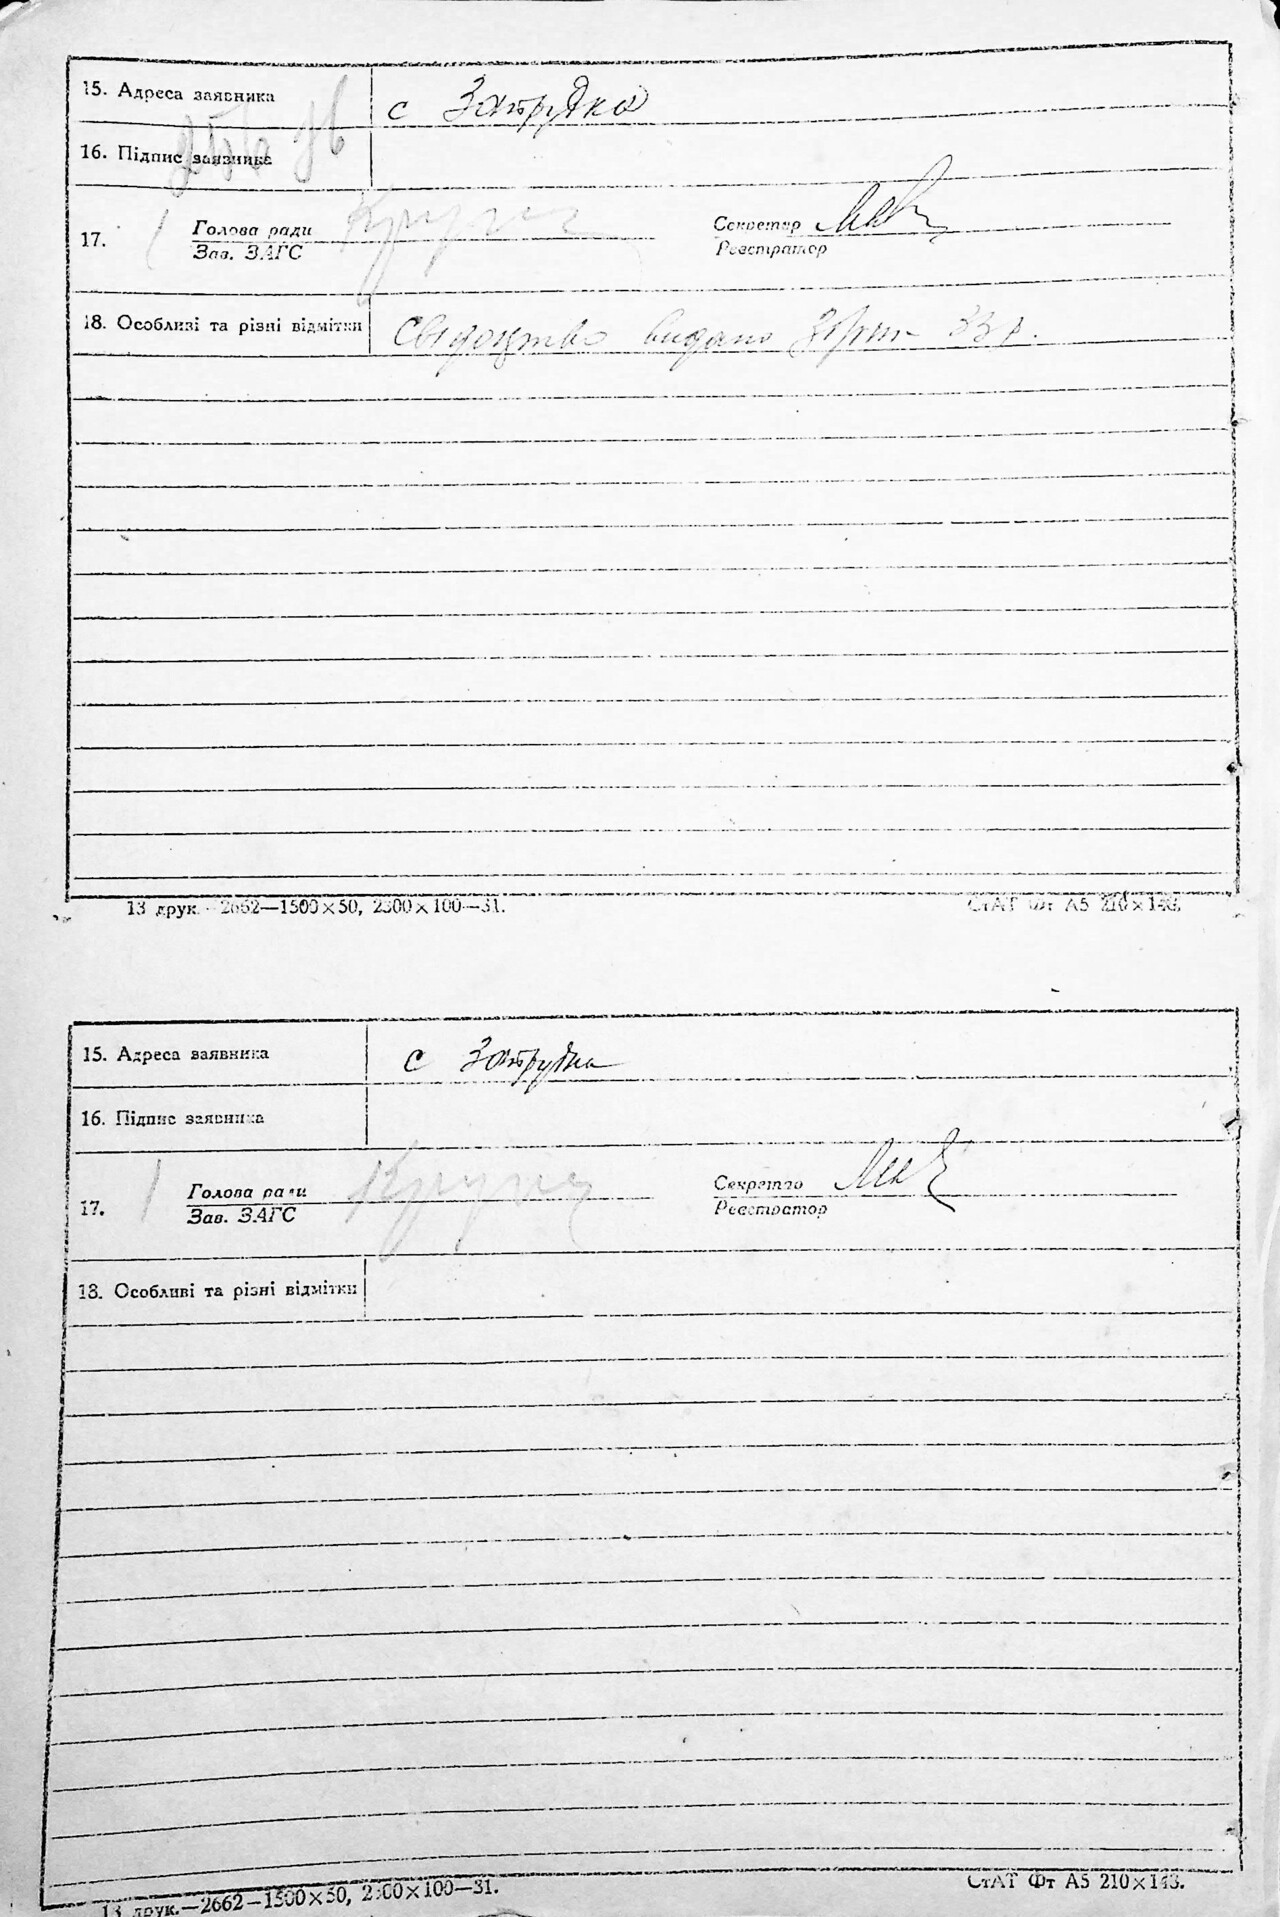 15. Адреса заявника с Затрудка
16. Підпис заявника
17. Голова ради Секретар
Зав. ЗАГС Реєстратор
18. Особливі та різні відмітки Свідоцтво видано 33 р.
13 друк.—2662—1500×50, 2300×100—31. СтАТ Фт А5 210×148.
15. Адреса заявника с Затрудка
16. Підпис заявника
17. Голова ради Секретар
Зав. ЗАГС Реєстратор
18. Особливі та різні відмітки
13 друк.—2662—1500×50, 2300×100—31. СтАТ Фт А5 210×148.